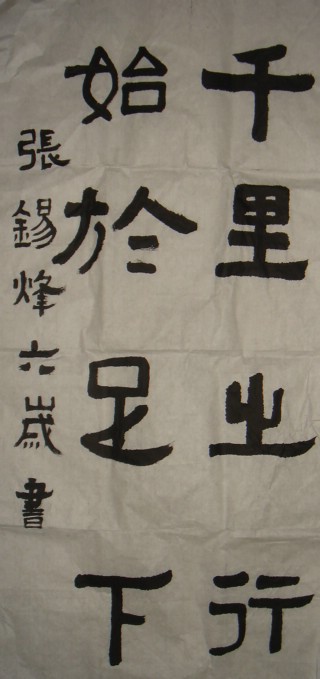 千里之行
始於足下
張錫烽六歲書